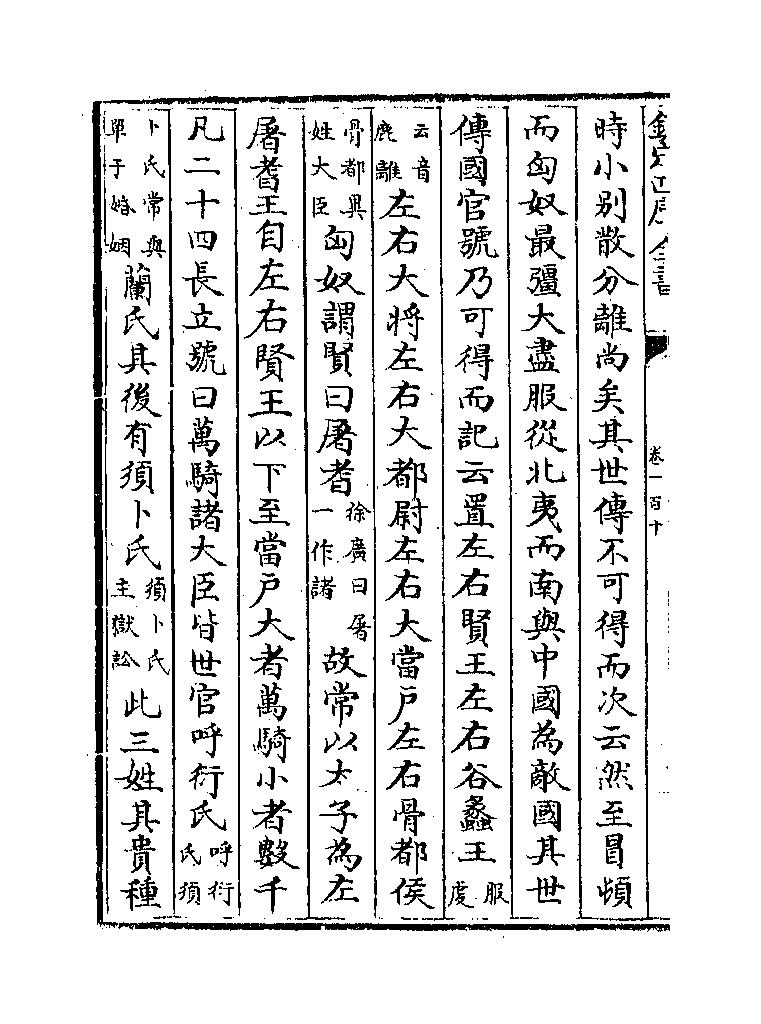 欽定四庫全書
卷一百十
時小别散分離尚矣其世傳不可得而次云然至冒頓
而匈奴最彊大盡服從北夷而南與中國為敵國其世
傳國官號乃可得而記云置左右賢王左右谷蠡王服虔
云音鹿離左右大將左右大都尉左右大當户左右骨都侯
骨都異姓大臣匈奴謂賢曰屠耆徐廣曰屠一作諸故常以太子為左
屠耆王自左右賢王以下至當户大者萬騎小者數千
凡二十四長立號曰萬騎諸大臣皆世官呼衍氏呼衍氏須
卜氏常與單于婚姻蘭氏其後有須卜氏須卜氏主獄訟此三姓其貴種